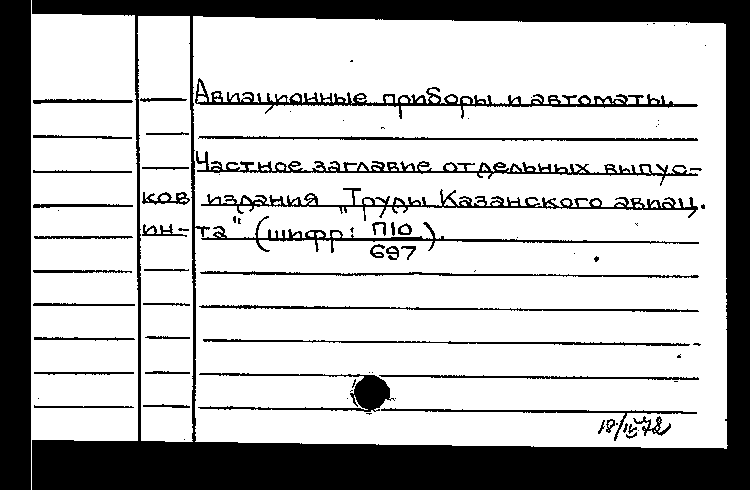 Авиационные приборы и автоматы.
Частное заглавие отдельных выпус-
ков издания „Труды Казанского авиац.
ин-та" (шифр: П10/697).